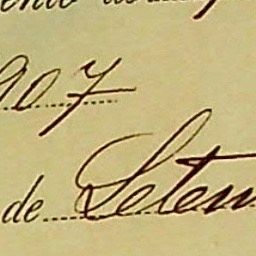 907
de Setem